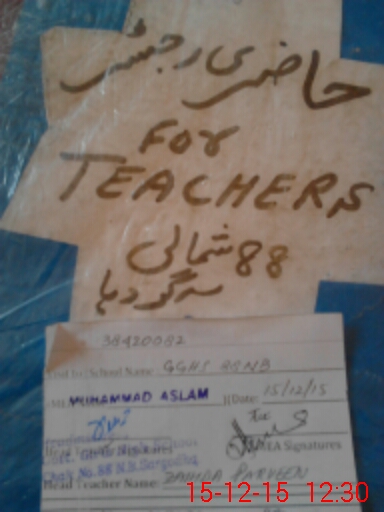 حاضری رجسٹر
FOR
TEACHERS
88 شمالی
سرگودہا
38420082
School Name: GGHS 88NB
MUHAMMAD ASLAM Date: 15/12/15
MEA Signatures
Head Teacher Name: ZAHIDA PARVEEN
15-12-15 12:30